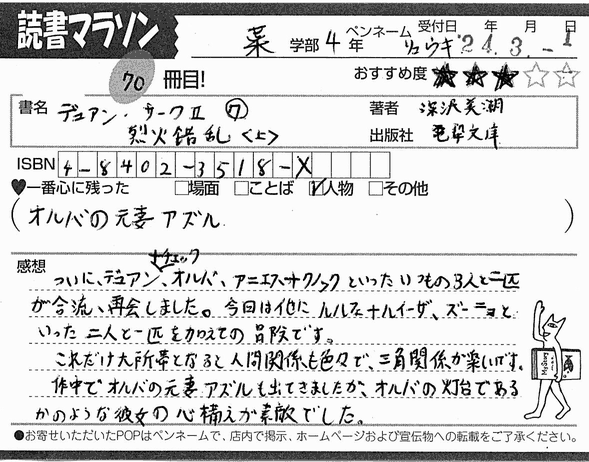 読書マラソン
70 冊目!
薬 学部 4 年 ペンネーム リュウギ 受付日 年 月 日 '24.3.-1
おすすめ度 ★★★☆☆
書名 デュアン・サークⅡ ⑦
烈火錯乱<上>
著者 深沢美潮
出版社 電撃文庫
ISBN 4-8402-3518-X
♥一番心に残った □場面 □ことば ☑人物 □その他
(オルバの元妻アズル)
感想
ついに、デュアン、オルバ、アニエス、
が合流、再会しました。今回は他にルルフェナルイーザ、ズーニョと
いった二人と一匹を加えての冒険です。
これだけ大所帯となると人間関係も色々で、三角関係が楽しいです。
作中でオルバの元妻アズルも出てきましたが、オルバの灯台である
かのような彼女の心構えが素敵でした。
●お寄せいただいたPOPはペンネームで、店内で掲示、ホームページおよび宣伝物への転載をご了承ください。